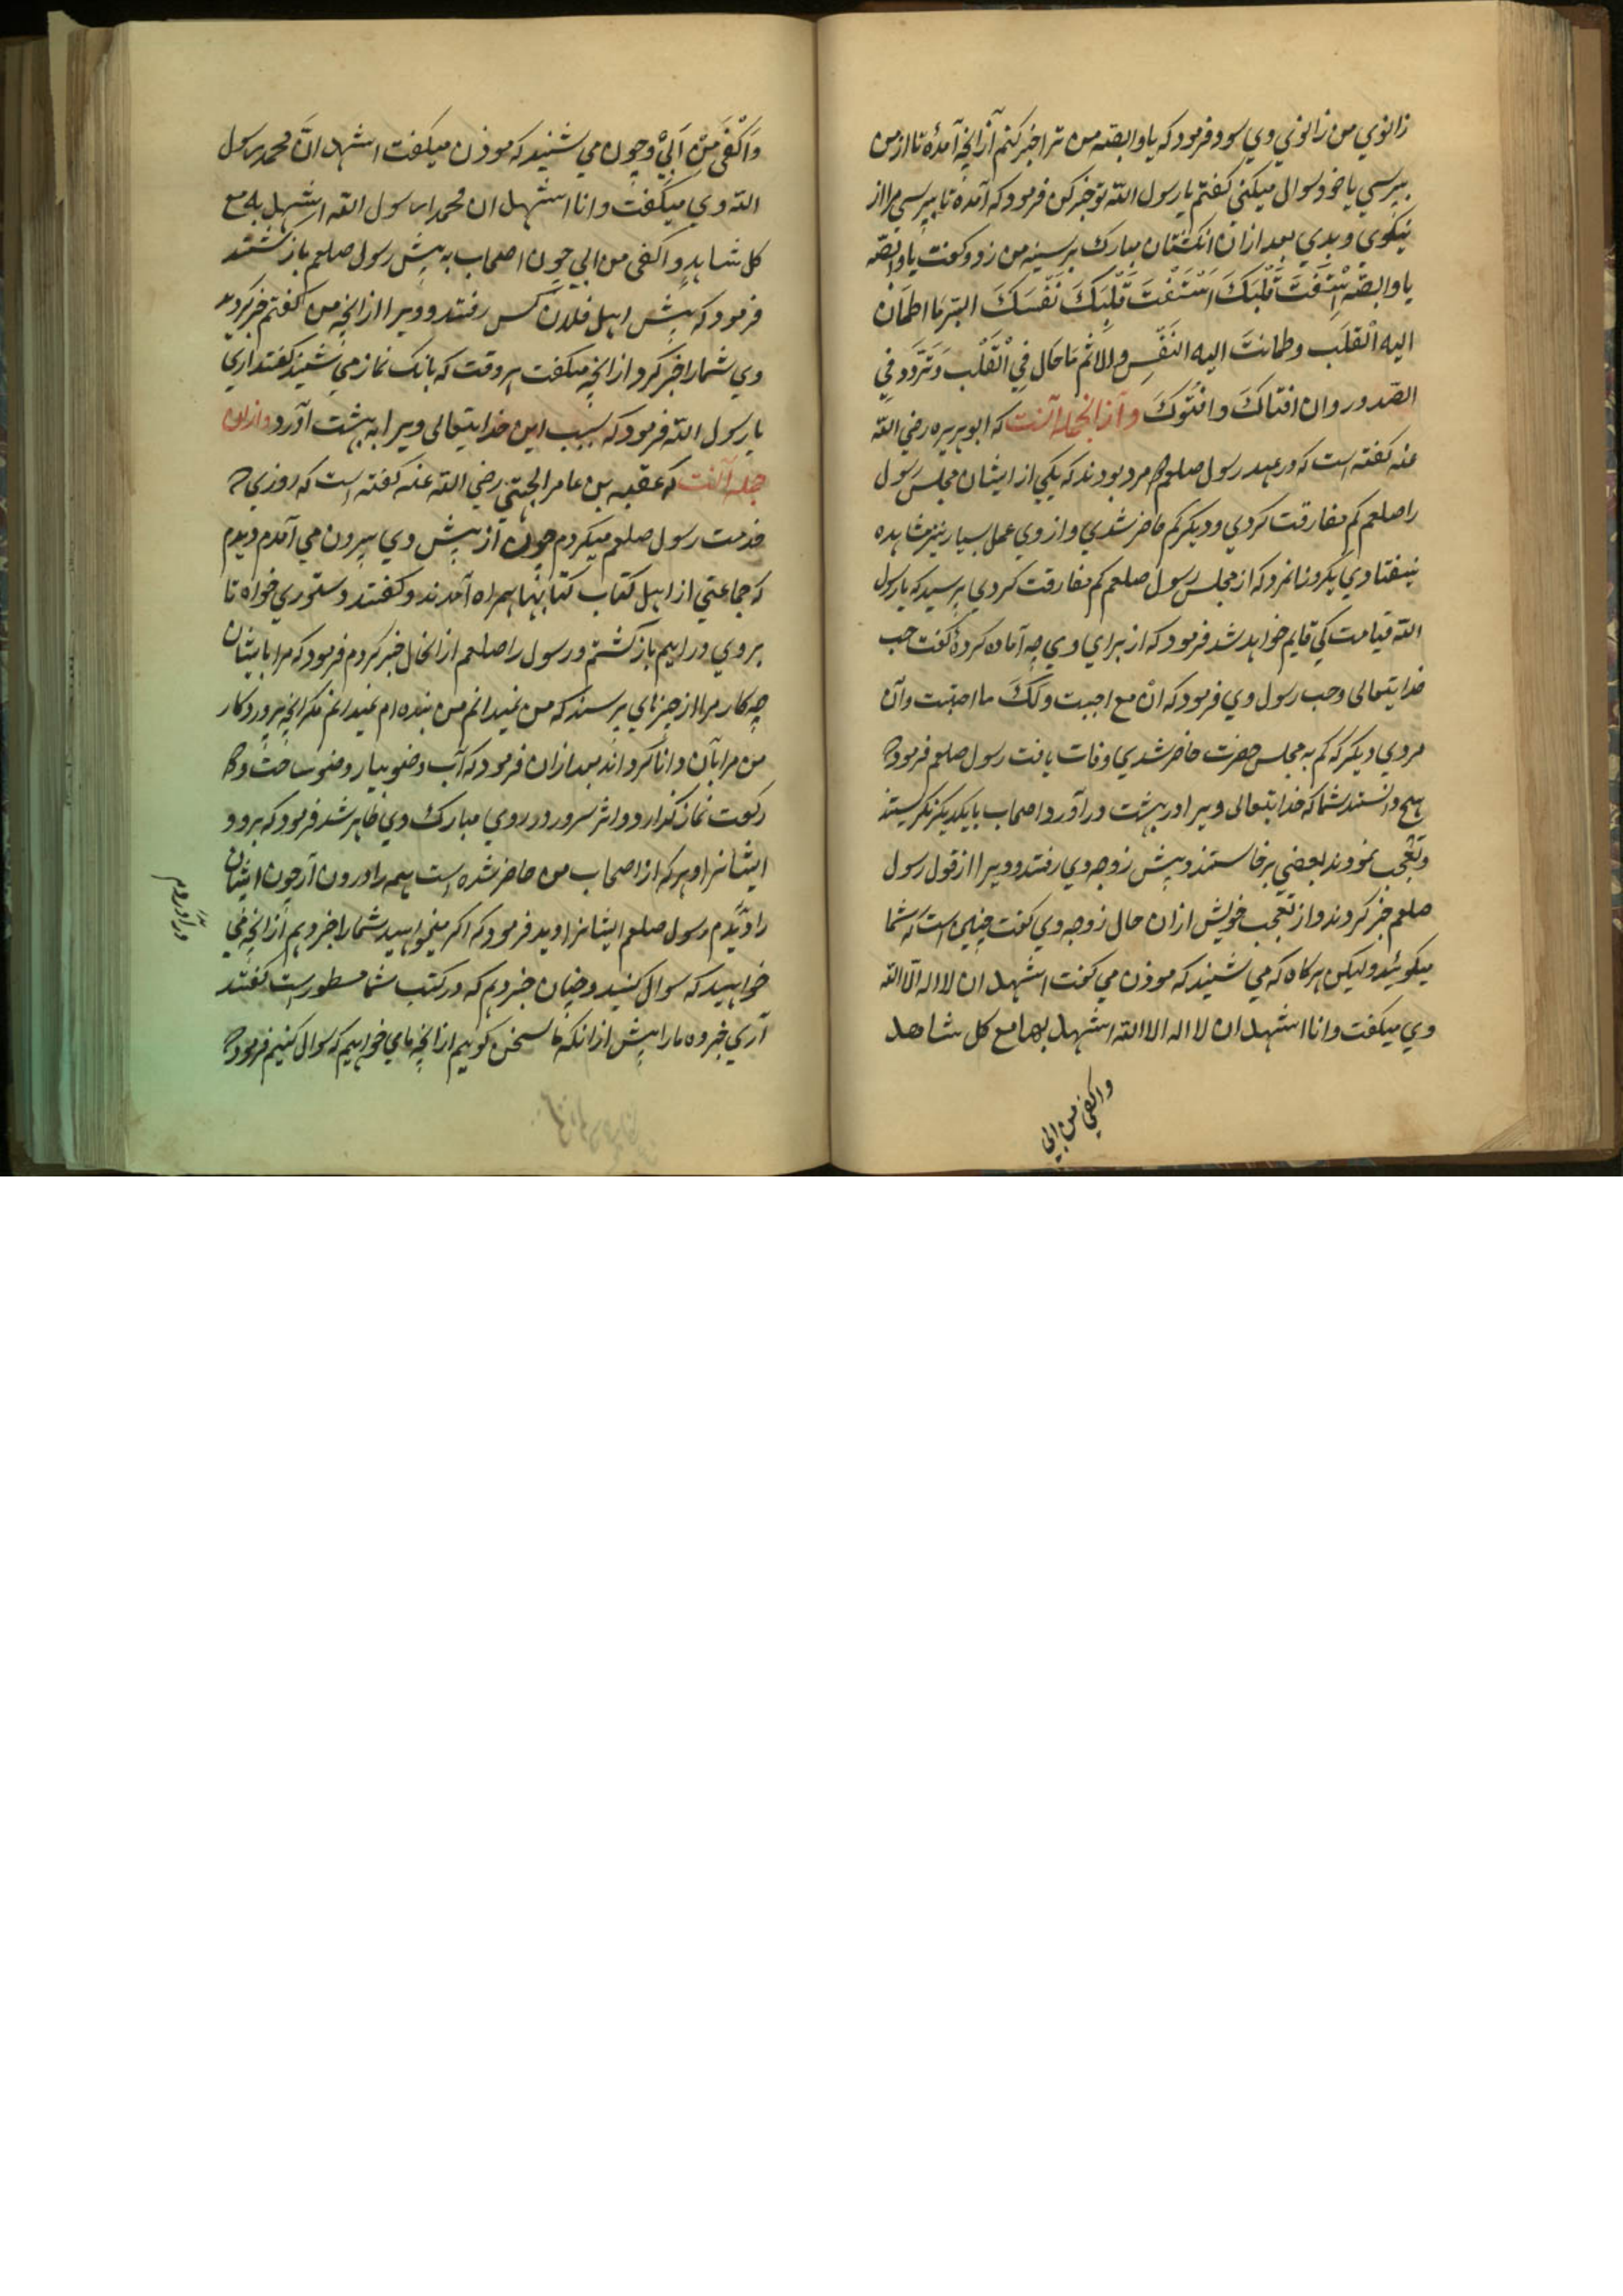 زانوي من زانوي وي سود فرمود كه يا وابصه من ترا خبر كنم از آنچه آمدۀ تا از من
بپرسي يا خود سوال ميكني گفتم يا رسول الله تو خبر كن فرمود كه آمده تا بپرسي مرا از
نيكوي و بدي بعد ازان انگشتان مبارك بر سينه من زد و گفت يا وابصه
يا وابصه اِسْتَفْتَ قَلْبَكَ اَسْتَفْتَ قَلْبَكَ نَفْسَكَ البِّر مَا اطمَان
اليه الْقلَب وطمانتَ اليه النَفْسِ والاثم مَا حَال فِي الْقَلْب وَتَرَّدَد فِي
الصّدور وان افتاكَ وافتُوكَ و از انجمله آنست كه ابو هريره رضي الله
عنه گفته است كه در عهد رسول صلعم دو مرد بودند كه يكي از ايشان مجلس رسول
را صلعم كم مفارقت كردي و ديگر كم حاضر شدي و از وي عمل بسيار نيز مشاهده
نيفتادي يكروز انمرد كه از مجلس رسول صلعم كم مفارقت كردي پرسيد كه يا رسول
الله قيامت كي قايم خواهد شد فرمود كه از براي وي چه آماده كردۀ گفت حب
خدايتعالى وحب رسول وي فرمود كه انّ مع احببت ولَكَ ما احتبت و آن
مردي ديگر كه كم به مجلس حضرت حاضر شدي وفات يافت رسول صلعم فرمود كه
هيچ دانستند شما كه خدايتعالى ويرا در بهشت در آورد اصحاب با يكديگر نگريستند
و تعجب نمودند بعضي برخاستند و پيش زوجه وي رفتند و ويرا از قول رسول
صلعم خبر كردند و از تعجب خويش ازان حال زوجه وي گفت چنين است كه شما
ميگوئيد وليكن هرگاه كه مي شنيد كه موذن مي گفت اشهد ان لا اله الا الله
وي ميگفت وانا اشهد ان لا اله الا الله اشهد بها مع كل شاهد
واكفي من ابي
وَاَكْفَى مَنْ اَبَيْ وچون مي شنيد كه موذن ميگفت اشهد انَّ محمد رسول
الله وي ميگفت وانا اشهد ان محمدا رسول الله اشهد به مع
كل شاهدٍ واكفى من ابي چون اصحاب به پيش رسول صلعم باز گشتند
فرمود كه پيش اهل فلان كس رفتند و ويرا از انچه من گفتم خبر كرديد
وي شما را خبر كرد از انچه ميگفت هر وقت كه بانگ نماز مي شنيد گفتند اري
يا رسول الله فرمود كه بسبب اين خدايتعالى ويرا به بهشت آورد و ازان
جمله آنست كه عقبه بن عامر الجهني رضي الله عنه گفته است كه روزي كه
خدمت رسول صلعم ميكردم چون از پيش وي بيرون مي آمدم ديدم
كه جماعتي از اهل كتاب كتابها همراه آمدند و گفتند دستوري خواه تا
بر وي در اييم باز گشتم و رسول را صلعم از انحال خبر كردم فرمود كه مرا بايشان
چه كار مرا از چيزهاي پرسند كه من نميدانم من بنده ام نميدانم مگر انچه پروردگار
من مرا بآن دانا گرداند بعد ازان فرمود كه آب وضو بيار وضو ساخت و دو
ركعت نماز گذارد و اثر سرور در روي مبارك وي ظاهر شد فرمود كه برو و
ايشانرا و هر كه از اصحاب من حاضر شده است همه را درون آر چون ايشان
را ديدم رسول صلعم ايشانرا ديد فرمود كه اگر ميخواهيد شما را خبر دهم از انچه مي
خواهيد كه سوال كنيد و چنان خبر دهم كه در كتب شما مسطور است گفتند
آري خبر ده ما را پيش از انكه ما سخن گوييم از انچه ما مي خواهيم كه سوال كنيم فرمود كه
درآوردم